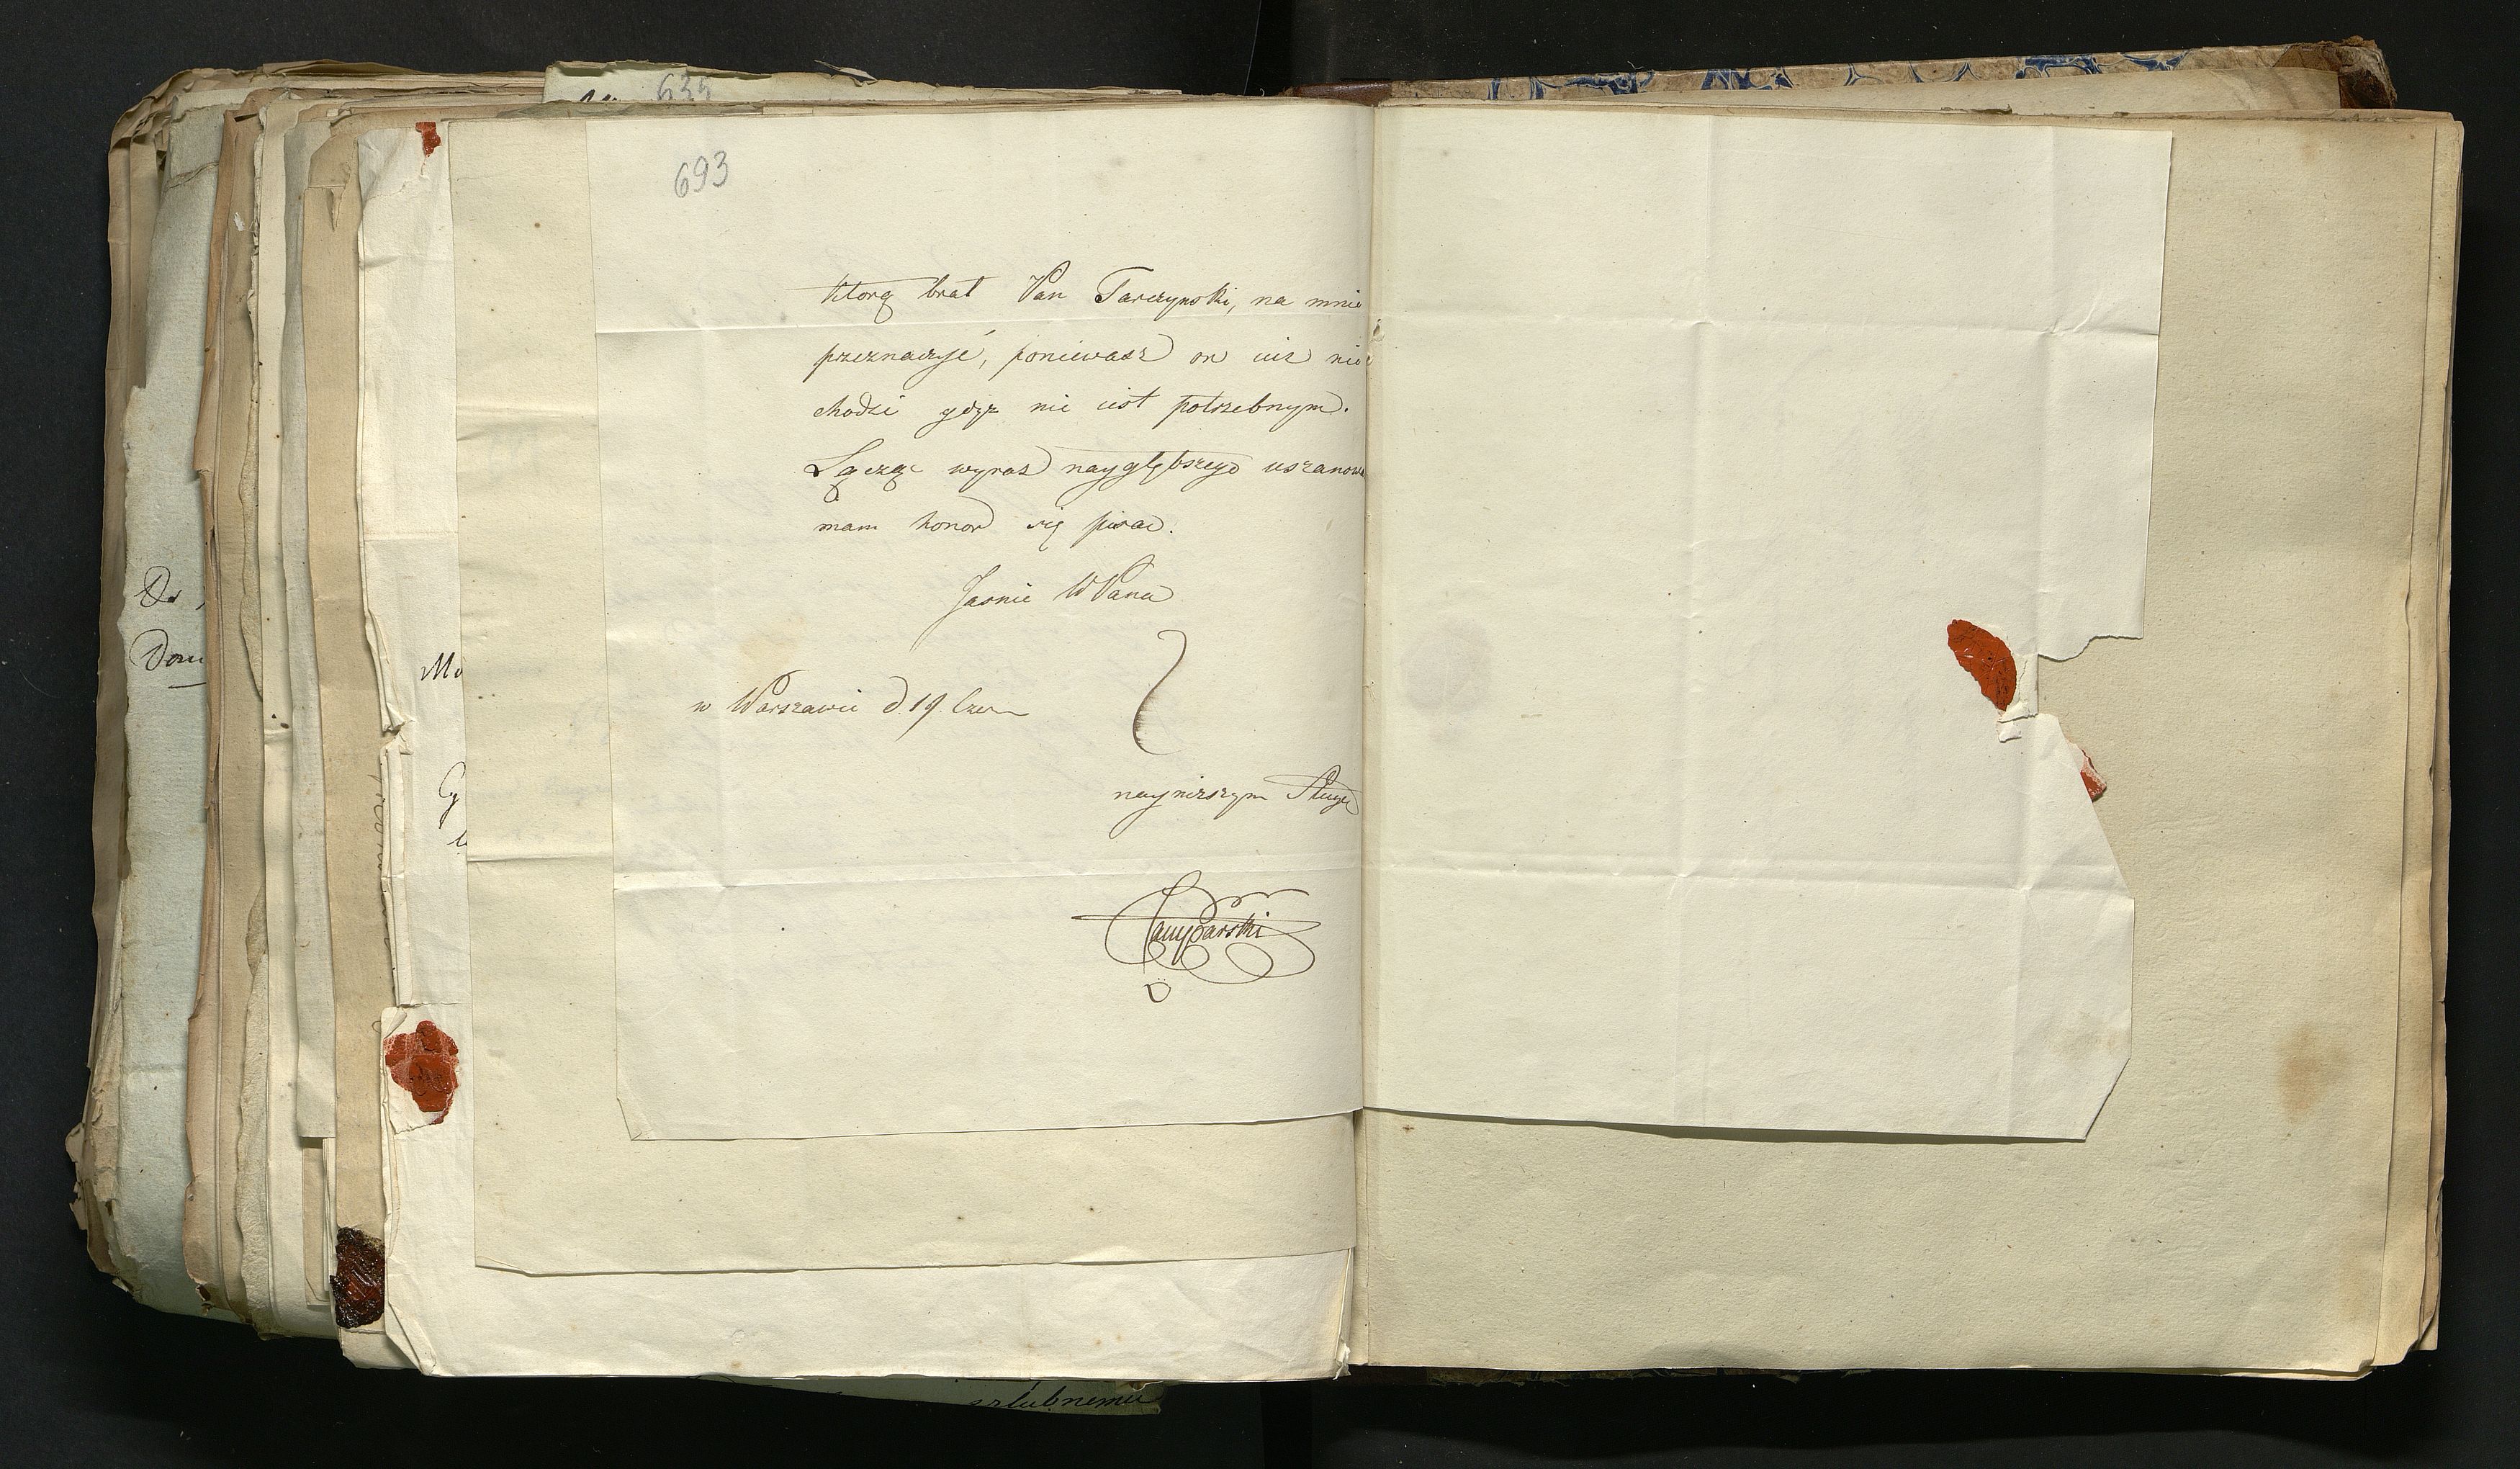 635
693
którą brał Pan Tarczynski, na mnie
przeznaczyć, poniewasz on iuż nie
chodzi gdyz nie iest potrzebnym.
Łącząc wyraz naygłębszego uszanowa
mam honor się pisac.
Jasnie WPana
w Warszawie d. 19. Czer
nayniższym Sługą
Do
Dom
Mo
Cy
szlubnemu